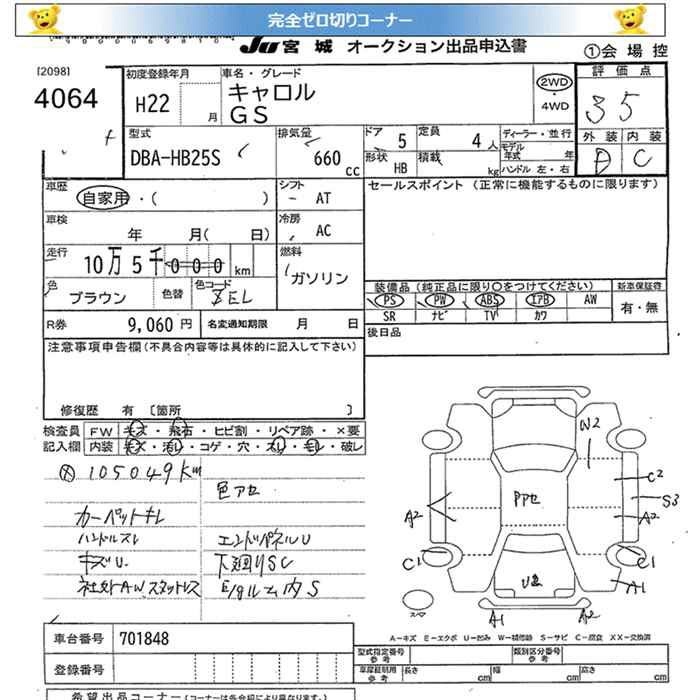 完全ゼロ切りコーナー
JU 宮城 オークション出品申込書
①会場控
[2098]
4064
初度登録年月 H22 月
車名・グレード キャロル
GS
2WD・4WD
評価点 35
型式 DBA-HB25S
排気量 660 cc
ドア 5
定員 4人
形状 HB
積載 kg
ディーラー・並行
モデル年式 年
ハンドル 左・右
外装 D
内装 C
車歴 自家用・( )
シフト - AT
セールスポイント (正常に機能するものに限ります)
車検 年 月( 日)
冷房 AC
走行 10万5千000 km
燃料 ガソリン
色 ブラウン 色替 色コード ZEL
装備品 (純正品に限り○をつけてください)
新車保証書
PS PW ABS エアB AW
有・無
SR ナビ TV カワ
R券 9,060 円 名変通知期限 月 日
後日品
注意事項申告欄 (不具合内容等は具体的に記入して下さい)
修復歴 有 [箇所 ]
検査員記入欄
FW キズ・飛石・ヒビ割・リペア跡・×要
内装 キズ・汚レ・コゲ・穴・スレ・モレ・破レ
105049km
色アセ
カーペットキレ
ハンドルスレ エンドパネルU
キズU. 下廻りSC
社外AWスタットレス E/gルーム内S
W2
C2
S3
A2
Pアセ
A2
C1
C1
A1
スペア
A1
A2
A-キズ E-エクボ U-凹み W-補修跡 S-サビ C-腐食 XX-交換済
車台番号 701848
型式指定番号 参考
類別区分番号 参考
登録番号
車庫証明用 参考 長さ cm 幅 cm 高さ cm
希望出品コーナー